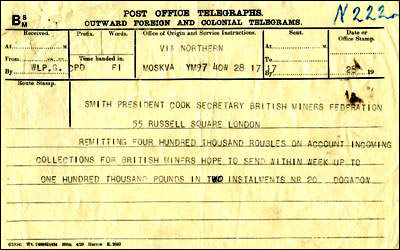 B S/M
POST OFFICE TELEGRAPHS.
OUTWARD FOREIGN AND COLONIAL TELEGRAMS.
N222
Received.
Prefix.
Time handed in.
Office of Origin and Service Instructions.
Words.
Date or
Office Stamp.
At
VIA NORTHERN
At
By WLP.G. CPD FI MOSKVA YM97 40W 28 17 17
By
28 19
Route Stamp.
SMITH PRESIDENT COOK SECRETARY BRITISH MINERS FEDERATION
55 RUSSELL SQUARE LONDON
REMITTING FOUR HUNDRED THOUSAND ROUBLES ON ACCOUNT INCOMING
COLLECTIONS FOR BRITISH MINERS HOPE TO SEND WITHIN WEEK UP TO
ONE HUNDRED THOUSAND POUNDS IN TWO INSTALMENTS NR 20 DOGADOV